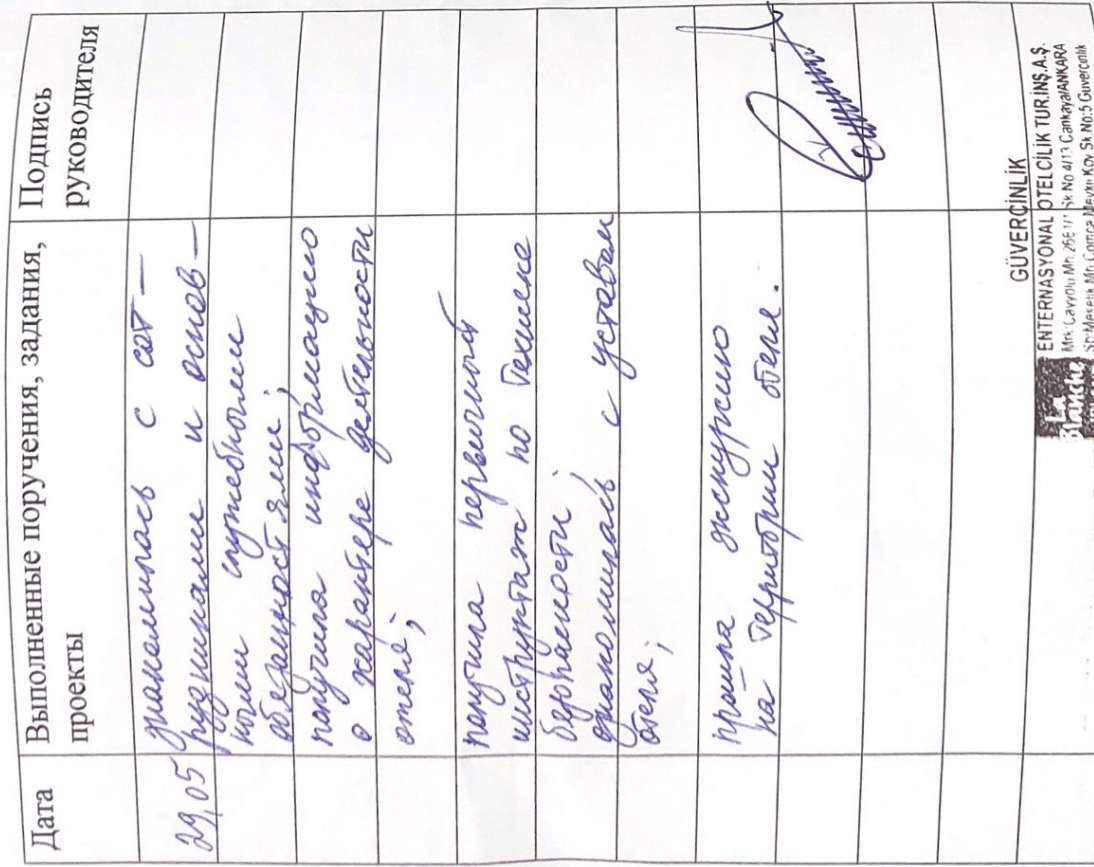 Дата
Выполненные поручения, задания,
проекты
Подпись
руководителя
29.05
знакомилась с сот-
рудниками и основ-
ными служебными
обязаностями;
получила информацию
о характере деятельности
отеля;
получила первичный
инструктаж по технике
безопасности;
ознакомилась с уставом
отеля;
прошла экскурсию
на территории отеля.
GÜVERCİNLİK
La
Blanche
ENTERNASYONAL OTELCİLİK TUR.İNŞ.A.Ş.
Mrk: Çayyolu Mh. 2661/1 Sk No 4/13 Çankaya/ANKARA
Şb: Meşelik Mh. Comca Mevkii Köy Sk No:5 Güvercinlik